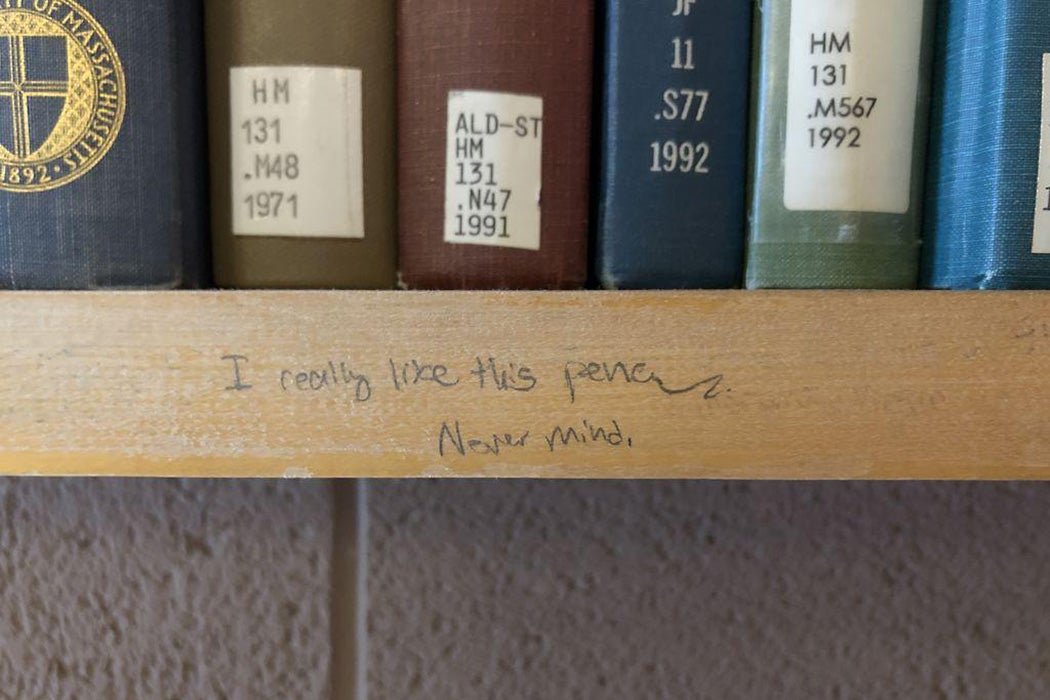 TY OF MASSACHUSETTS
1892
HM
131
.M48
1971
ALD-ST
HM
131
.N47
1991
JF
11
.S77
1992
HM
131
.M567
1992
I really like this penc
Never mind.